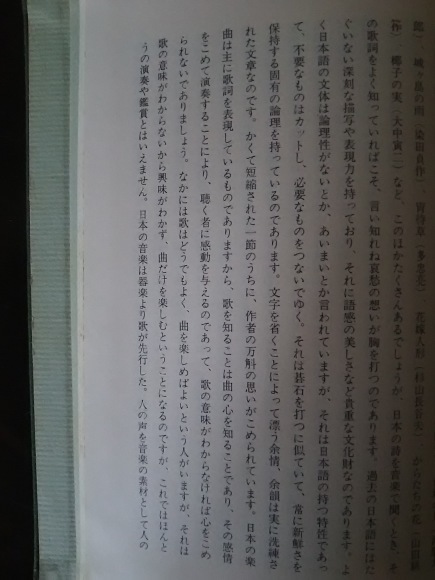 郎)、城ヶ島の雨(梁田貞作)、宵待草(多忠亮)、花嫁人形(杉山長谷夫)、からたちの花(山田耕
作)、椰子の実(大中寅二)など、このほかたくさんあるでしょうが、日本の詩を音楽で聞くとき、そ
の歌詞をよく知っていればこそ、言い知れぬ哀愁の想いが胸を打つのであります。過去の日本語にはた
ぐいない深刻な描写や表現力を持っており、それに語感の美しさなど貴重な文化財なのであります。よ
く日本語の文体は論理性がないとか、あいまいとか言われていますが、それは日本語の持つ特性であっ
て、不要なものはカットし、必要なものをつないでゆく。それは碁石を打つに似ていて、常に新鮮さを
保持する固有の論理を持っているのであります。文字を省くことによって漂う余情、余韻は実に洗練さ
れた文章なのです。かくて短縮された一節のうちに、作者の万斛の思いがこめられています。日本の楽
曲は主に歌詞を表現しているものでありますから、歌を知ることは曲の心を知ることであり、その感情
をこめて演奏することにより、聴く者に感動を与えるのであって、歌の意味がわからなければ心をこめ
られないでありましょう。なかには歌はどうでもよく、曲を楽しめばよいという人がいますが、それは
歌の意味がわからないから興味がわかず、曲だけを楽しむということになるのですが、これではほんと
うの演奏や鑑賞とはいえません。日本の音楽は器楽より歌が先行した。人の声を音楽の素材として人の